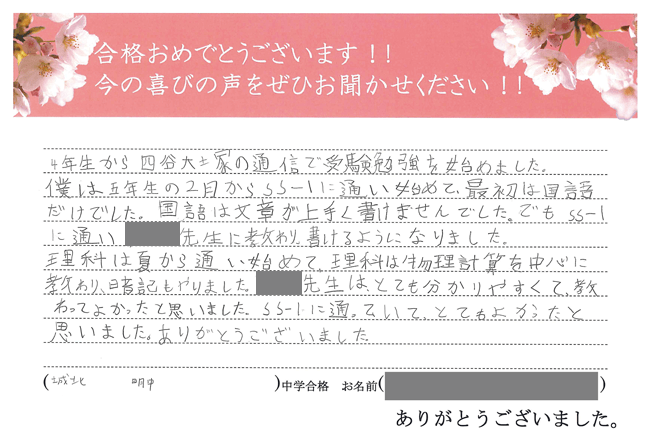 合格おめでとうございます!!
今の喜びの声をぜひお聞かせください!!
4年生から四谷大土家の通信で受験勉強を始めました。
僕は五年生の2月からSS-1に通い始めて、最初は国語
だけでした。国語は文章が上手く書けませんでした。でもSS-1
に通い 先生に教わり、書けるようになりました。
理科は夏から通い始めて。理科は物理計算を中心に
教わり、暗記もやりました。 先生はとても分かりやすくて、教
わってよかったと思いました。SS-1に通っていて、とてもよかったと
思いました。ありがとうございました
(城北 明中 )中学合格 お名前( )
ありがとうございました。